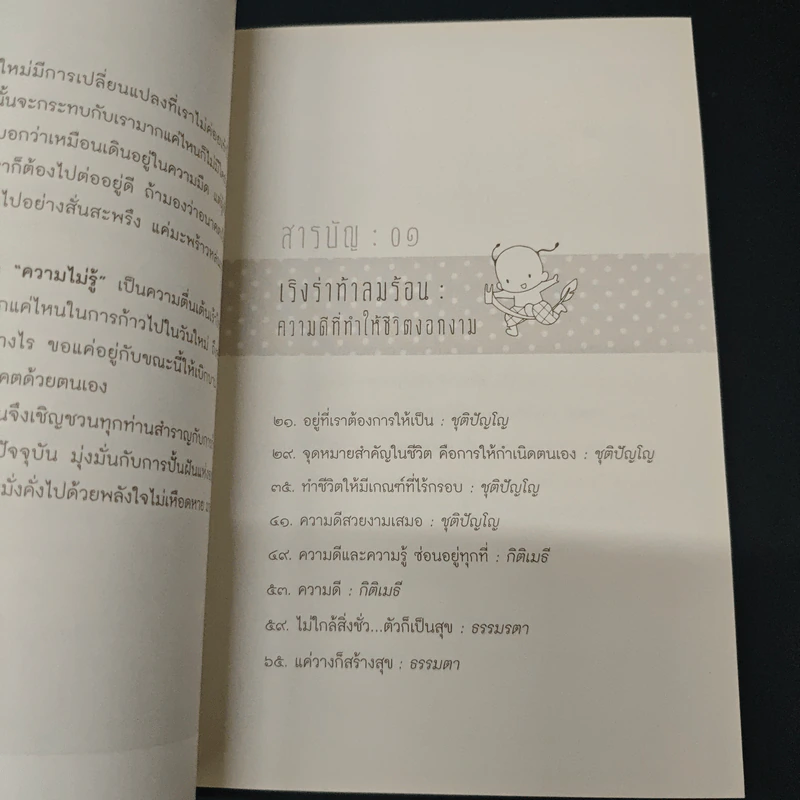 ใหม่มีการเปลี่ยนแปลงที่เราไม่
นั้นจะกระทบกับเรามากแค่ไหนก็ไม่
บอกว่าเหมือนเดินอยู่ในความมืด
ก็ต้องไปต่ออยู่ดี ถ้ามองว่า
ไปอย่างสั่นสะพรึง แค่มะพร้าว
"ความไม่รู้" เป็นความตื่นเต้น
แค่ไหนในการก้าวไปในวันใหม่
ขอแค่อยู่กับขณะนี้ให้
ด้วยตนเอง
จึงเชิญชวนทุกท่านสำราญกับ
ปัจจุบัน มุ่งมั่นกับการปั้นฝัน
มั่งคั่งไปด้วยพลังใจไม่เหือดหาย
สารบัญ : ๐๑
เริงร่าท้าลมร้อน :
ความดีที่ทำให้ชีวิตงอกงาม
๒๑. อยู่ที่เราต้องการให้เป็น : ชุติปัญโญ
๒๙. จุดหมายสำคัญในชีวิต คือการให้กำเนิดตนเอง : ชุติปัญโญ
๓๕. ทำชีวิตให้มีเกณฑ์ที่ไร้กรอบ : ชุติปัญโญ
๔๑. ความดีสวยงามเสมอ : ชุติปัญโญ
๔๙. ความดีและความรู้ ซ่อนอยู่ทุกที่ : กิติเมธี
๕๓. ความดี : กิติเมธี
๕๙. ไม่ใกล้สิ่งชั่ว...ตัวก็เป็นสุข : ธรรมรตา
๖๕. แค่วางก็สร้างสุข : ธรรมตา